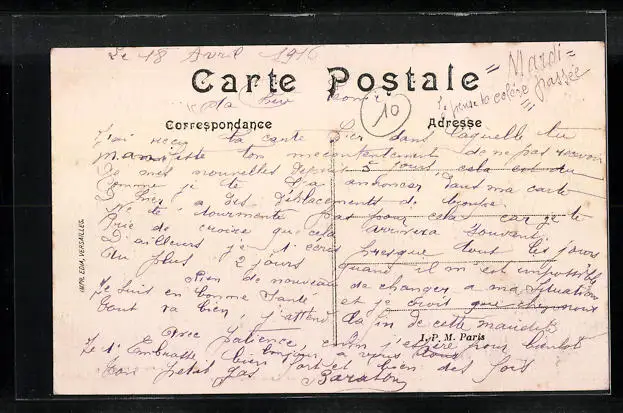 Le 18 Avril 1916
Mardi =
Carte Postale
passée
je pense ta colère
Ma Bien
10
Correspondance
Adresse
J'ai reçu ta carte hier dans laquelle tu
manifeste ton mécontentement de ne pas recevoir
de mes nouvelles depuis 5 jours cela est du
comme je te l'ai annoncer dans ma carte
D'hier a des déplacements de
ne te tourmente pas pour cela car je te
Prie de croire que cela arrivera souvent
D'ailleurs je t'écris presque tout les jours
au plus 2 jours quand il m'est impossible
Rien de nouveau de changer a ma situation
Je suis en bonne santé et je crois que chez nous
tout va bien, j'attend la fin de cette maudite
I. P. M. Paris
Avec patience, enfin j'espère pour bientôt
Je t'Embrasse bien fort et bien des fois
toujours a vous
petit gas
Baraton
IMPR. EDIA, VERSAILLES